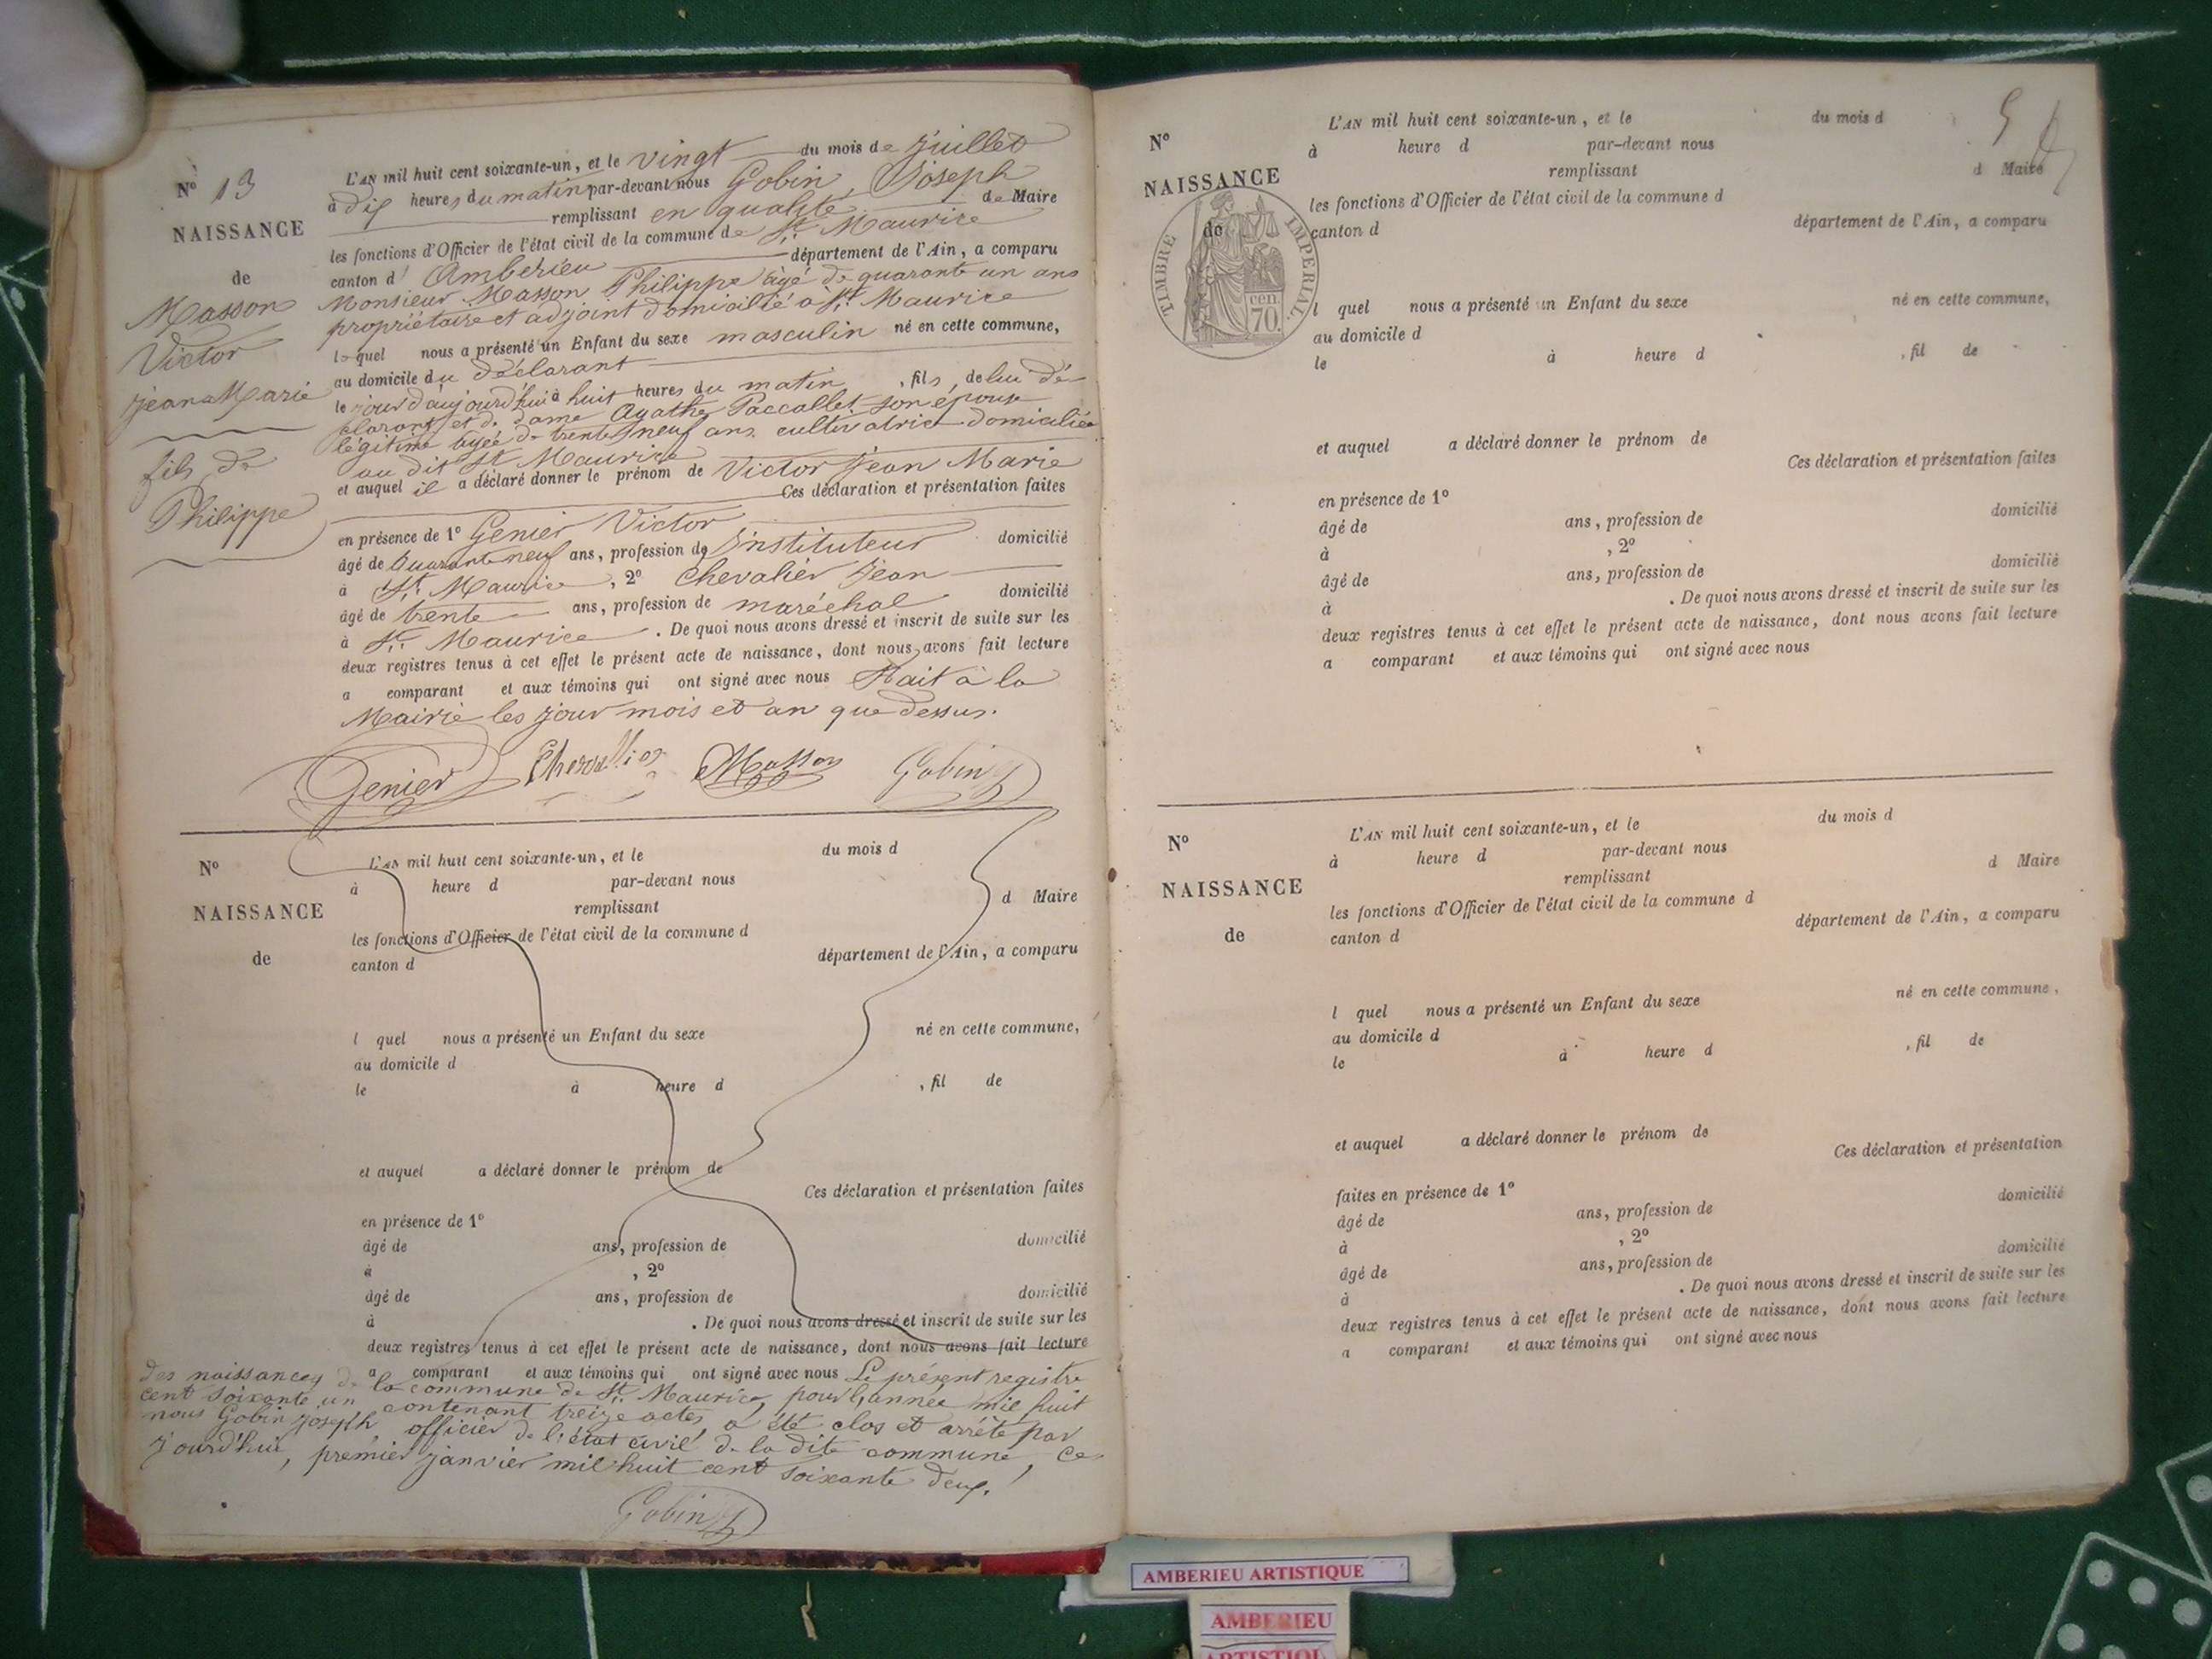 N° 13
NAISSANCE
de
Masson
Victor
Jean Marie
fils de
Philippe
L'AN mil huit cent soixante-un, et le vingt du mois de Juillet
à dix heures du matin par-devant nous Gobin Joseph
remplissant en qualité de Maire
les fonctions d'Officier de l'état civil de la commune de St. Maurice
canton d' Ambérieu département de l'Ain, a comparu
Monsieur Masson Philippe âgé de quarante un ans
propriétaire et adjoint domicilié à St. Maurice
lequel nous a présenté un Enfant du sexe masculin né en cette commune,
au domicile du déclarant
le jour d'aujourd'hui à huit heures du matin, fils, de lui dé-
clarant et de dame Agathe Paccallet son épouse
légitime âgée de trente neuf ans cultivatrice domiciliée
au dit St Maurice
et auquel il a déclaré donner le prénom de Victor Jean Marie
Ces déclaration et présentation faites
en présence de 1° Genier Victor
âgé de Quarante neuf ans, profession de Instituteur domicilié
à St. Maurice, 2° Chevalier Jean
âgé de trente ans, profession de maréchal domicilié
à St. Maurice. De quoi nous avons dressé et inscrit de suite sur les
deux registres tenus à cet effet le présent acte de naissance, dont nous avons fait lecture
a comparant et aux témoins qui ont signé avec nous Fait à la
Mairie les jour mois et an que dessus.
Genier Chevallier Masson Gobin
N°
NAISSANCE
de
L'AN mil huit cent soixante-un, et le du mois d
à heure d par-devant nous
remplissant d Maire
les fonctions d'Officier de l'état civil de la commune d
canton d département de l'Ain, a comparu
l quel nous a présenté un Enfant du sexe né en cette commune,
au domicile d
le à heure d , fil de
et auquel a déclaré donner le prénom de
Ces déclaration et présentation faites
en présence de 1°
âgé de ans, profession de domicilié
à , 2°
âgé de ans, profession de domicilié
à . De quoi nous avons dressé et inscrit de suite sur les
deux registres tenus à cet effet le présent acte de naissance, dont nous avons fait lecture
a comparant et aux témoins qui ont signé avec nous Le présent registre
des naissances de la commune de St. Maurice, pour l'année mil huit
cent soixante un contenant treize actes, a été clos et arrêté par
nous Gobin Joseph officier de l'état civil de la dite commune, ce
jourd'hui, premier janvier mil huit cent soixante deux.
Gobin
5
N°
NAISSANCE
de
TIMBRE IMPERIAL
70 cen.
L'AN mil huit cent soixante-un, et le du mois d
à heure d par-devant nous
remplissant d Maire
les fonctions d'Officier de l'état civil de la commune d
canton d département de l'Ain, a comparu
l quel nous a présenté un Enfant du sexe né en cette commune,
au domicile d
le à heure d , fil de
et auquel a déclaré donner le prénom de
Ces déclaration et présentation faites
en présence de 1°
âgé de ans, profession de domicilié
à , 2°
âgé de ans, profession de domicilié
à . De quoi nous avons dressé et inscrit de suite sur les
deux registres tenus à cet effet le présent acte de naissance, dont nous avons fait lecture
a comparant et aux témoins qui ont signé avec nous
N°
NAISSANCE
de
L'AN mil huit cent soixante-un, et le du mois d
à heure d par-devant nous
remplissant d Maire
les fonctions d'Officier de l'état civil de la commune d
canton d département de l'Ain, a comparu
l quel nous a présenté un Enfant du sexe né en cette commune,
au domicile d
le à heure d , fil de
et auquel a déclaré donner le prénom de
Ces déclaration et présentation
faites en présence de 1°
âgé de ans, profession de domicilié
à , 2°
âgé de ans, profession de domicilié
à . De quoi nous avons dressé et inscrit de suite sur les
deux registres tenus à cet effet le présent acte de naissance, dont nous avons fait lecture
a comparant et aux témoins qui ont signé avec nous
AMBERIEU ARTISTIQUE
AMBERIEU